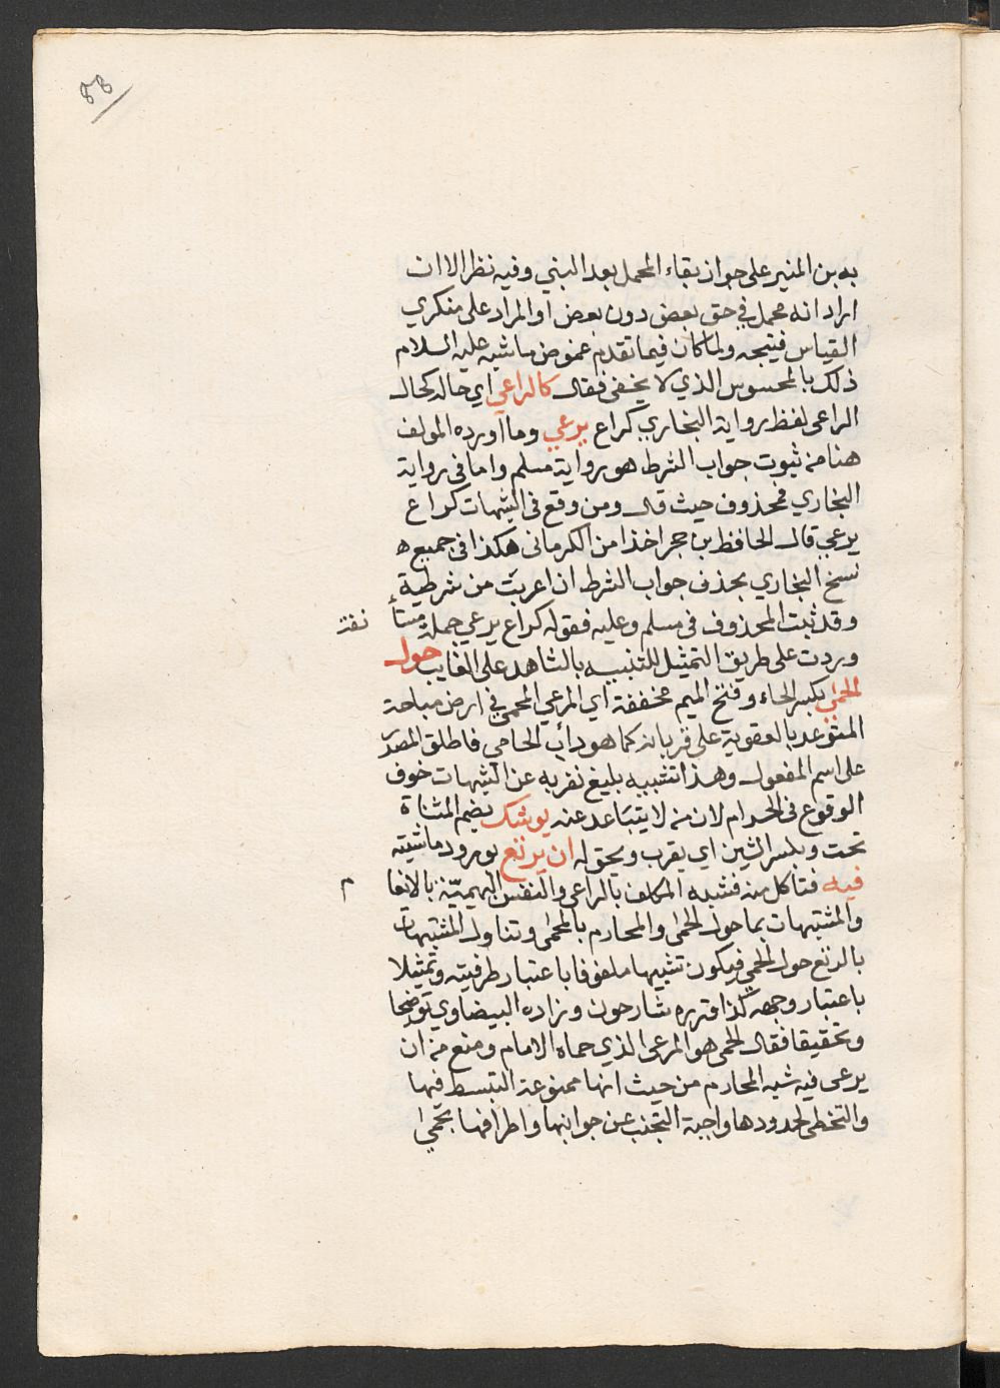 به بن المنير على جواز بقاء المجمل بعد النبي وفيه نظر الا ان
اراد انه مجمل في حق بعض دون بعض او المراد على منكري
القياس فيتجه ولما كان فيما تقدم غموض ما شبه عليه السلام
ذلك بالمحسوس الذي لا يخفى فقال كالراعي اي حاله كحال
الراعي لفظ رواية البخاري كراع يرعي وما اورده المولف
هنا من ثبوت جواب الشرط هو رواية مسلم واما في رواية
البخاري فمحذوف حيث قال ومن وقع في الشبهات كراع
يرعي قال الحافظ بن حجر اخذا من الكرماني هكذا في جميع ه
نسخ البخاري بحذف جواب الشرط ان اعربت من شرطية
وقد ثبت المحذوف في مسلم وعليه فقوله كراع يرعي جملة مستأ
وردت على طريق التمثيل للتنبيه بالشاهد على الغايب حول
الحمى بكسر الحاء وفتح الميم مخففة اي المرعي المحمي في ارض مباحة
المتوعد بالعقوبة على قربانه كما هو دأب الحامي فاطلق المصدر
على اسم المفعول وهذا تشبيه بليغ نفر به عن الشبهات خوف
الوقوع في الحرام لان من لا يتباعد عنه يوشك بضم المثناة
تحت وبكسر الشين اي يقرب ويحق له ان يرتع بورود ماشيته
فيه فتاكل منه فشبه المكلف بالراعي والنفس البهيمية بالانعا م
والمشتبهات بما حول الحمى والمحارم بالحمى وتناول المشتبهات
بالرتع حول الحمى فيكون تشبيها ملفوفا باعتبار طرفيته وتمثيلا
باعتبار وجهه كذا قرره شارحون وزاده البيضاوي توضيحا
وتحقيقا فقال الحمى هو المرعى الذي حماه الامام ومنع من ان
يرعى فيه شبه المحارم من حيث انها ممنوعة التبسط فيها
والتخطي لحدودها واجبة التجنب عن جوانبها واطرافها بحمى